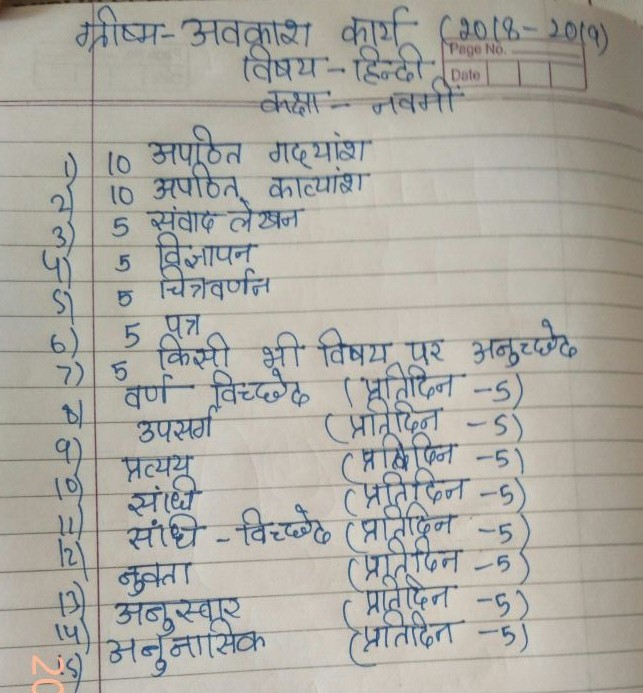 ग्रीष्म-अवकाश कार्य (2018-2019)
Page No.
विषय - हिन्दी
Date
कक्षा - नवमीं
1) 10 अपठित गद्यांश
2) 10 अपठित काव्यांश
3) 5 संवाद लेखन
4) 5 विज्ञापन
5) 5 चित्रवर्णन
6) 5 पत्र
7) 5 किसी भी विषय पर अनुच्छेद
8) वर्ण विच्छेद (प्रतिदिन -5)
9) उपसर्ग (प्रतिदिन -5)
10) प्रत्यय (प्रतिदिन -5)
11) संधि (प्रतिदिन -5)
12) संधि - विच्छेद (प्रतिदिन -5)
13) नुक्ता (प्रतिदिन -5)
14) अनुस्वार (प्रतिदिन -5)
15) अनुनासिक (प्रतिदिन -5)
20